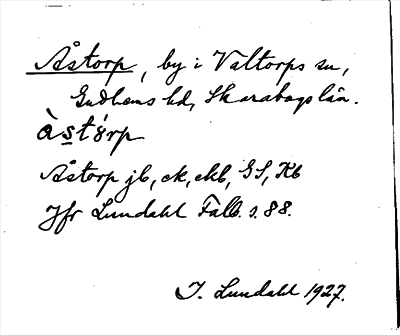 Åstorp, by i Valtorps sn,
Gudhems hd, Skarabogs län.
àstórp
Åstorp jb, ek, ekb, GS, Kb
Jfr Lundahl Falb. s. 88.
I. Lundahl 1927.